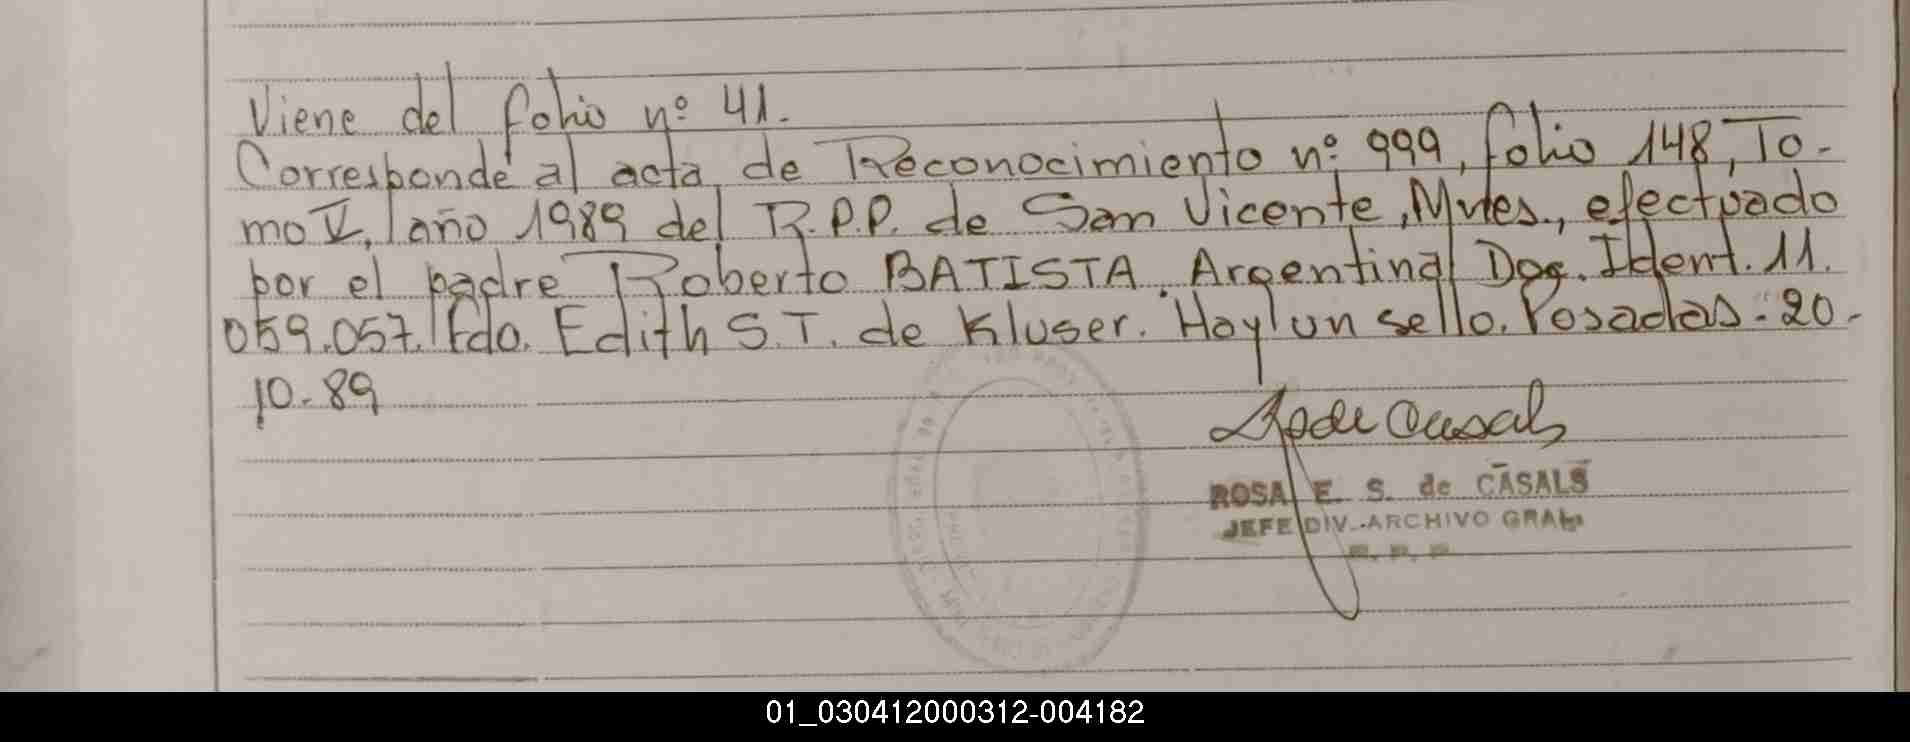 Viene del folio nº 41.
Corresponde al acta de Reconocimiento nº 999, folio 148, To-
mo V, año 1989 del R.P.P. de San Vicente, Mnes., efectuado
por el padre Roberto BATISTA. Argentina Doc. Ident. 11.
059.057. Fdo. Edith S.T. de Kluser. Hay un sello. Posadas: 20-
10-89
ROSA E. S. de CASALS
JEFE DIV. ARCHIVO GRAL
R. P. P
01_030412000312-004182